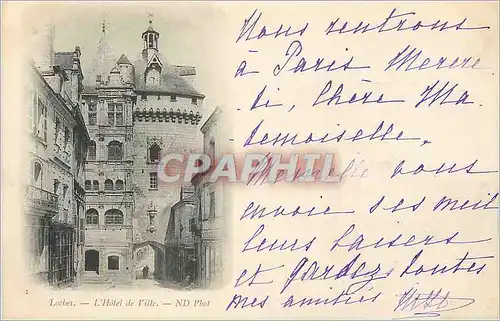 Nous rentrons
à Paris Mercre
di, Chère Ma
demoiselle,
vous
envoie ses meil
leurs baisers
et gardez toutes
mes amitiés
CPAPHIL
Loches. — L'Hôtel de Ville. — ND Phot